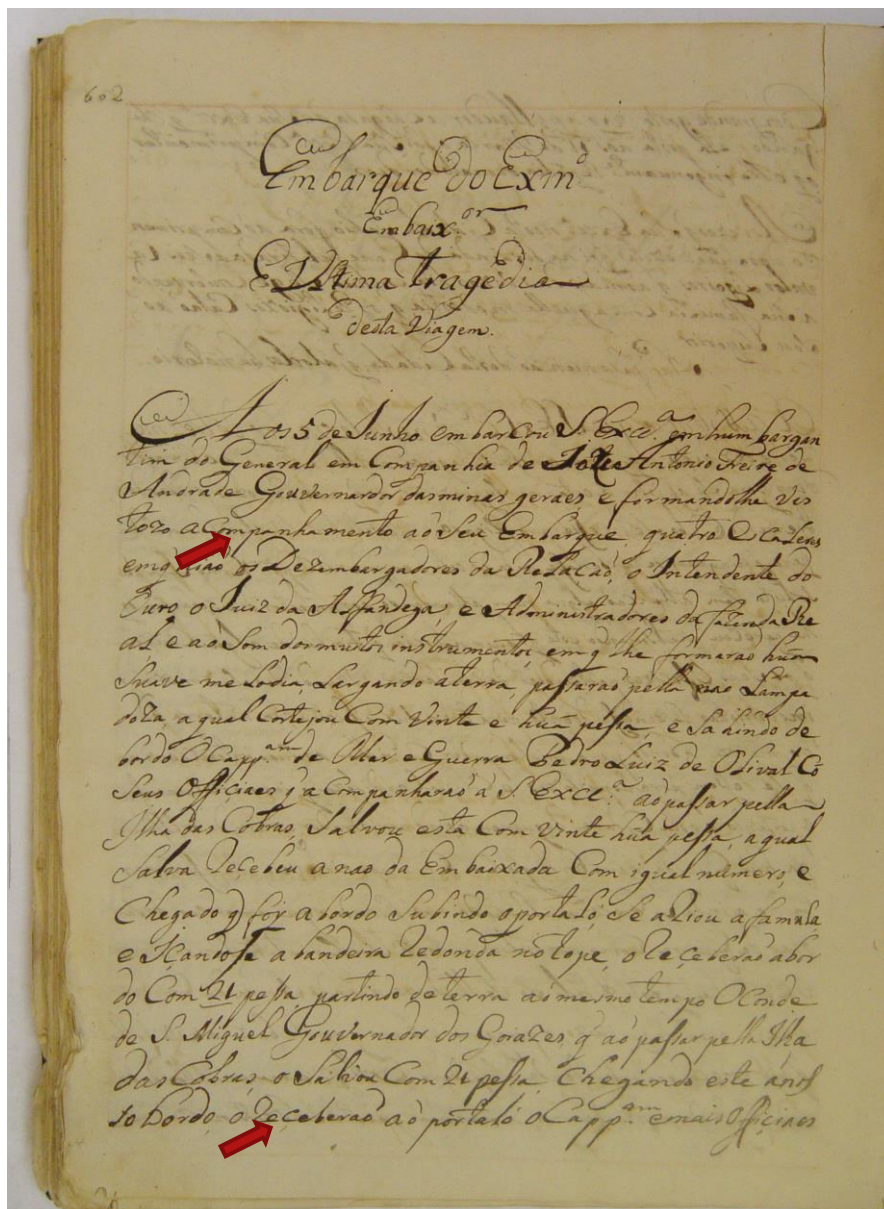 602
Embarque do Exmº
Embaix.or
E Ultima tragedia
desta Viagem.
Aos 5 de Junho embarcou S. Exce.ª em hum bargan
tim do General em Companhia de Joze Antonio Freire de
Andrade Gouvernardor dasminas geraes e formandolhe vis
tozo acompanhamento aó Seu Embarque, quatro Escaleres
em q hiaó os Dezembargadores da Relacaó, o Intendente do
Ouro o Juiz da Alfandega, e Administradores da fazenda Re
al e ao Som dos muitos instrumentos, em q lhe formaraó huã
Suave melodia, Largando aterra, passaraó pella nao Lampa
doza, a qual Cortejou Com Vinte e huã pessa, e Sahindo de
bordo O Capp.am de Mar e Guerra Pedro Luiz de Olival Cõ
Seus Officiaes q acompanharaó á S. Exce.ª aó passar pella
Ilha das Cobras, Salvou esta Com vinte huã pessa, a qual
Salva Recebeu a nao da Embaixada Com igual numero, e
Chegado q foy abordo Subindo oportaló, Se ariou a famula
e Içandose a bandeira Redonda no tope, o Receberaó abor
do Com 21 pessa, partindo de terra aó mesmo tempo O Conde
de S. Miguel Gouvernador dos Goyazes, q aó passar pella Ilha
das Cobras, o Salvou Com 21 pessa, Chegando este ános
so bordo, o Receberaó aó portaló o Capp.am e mais Officiaes